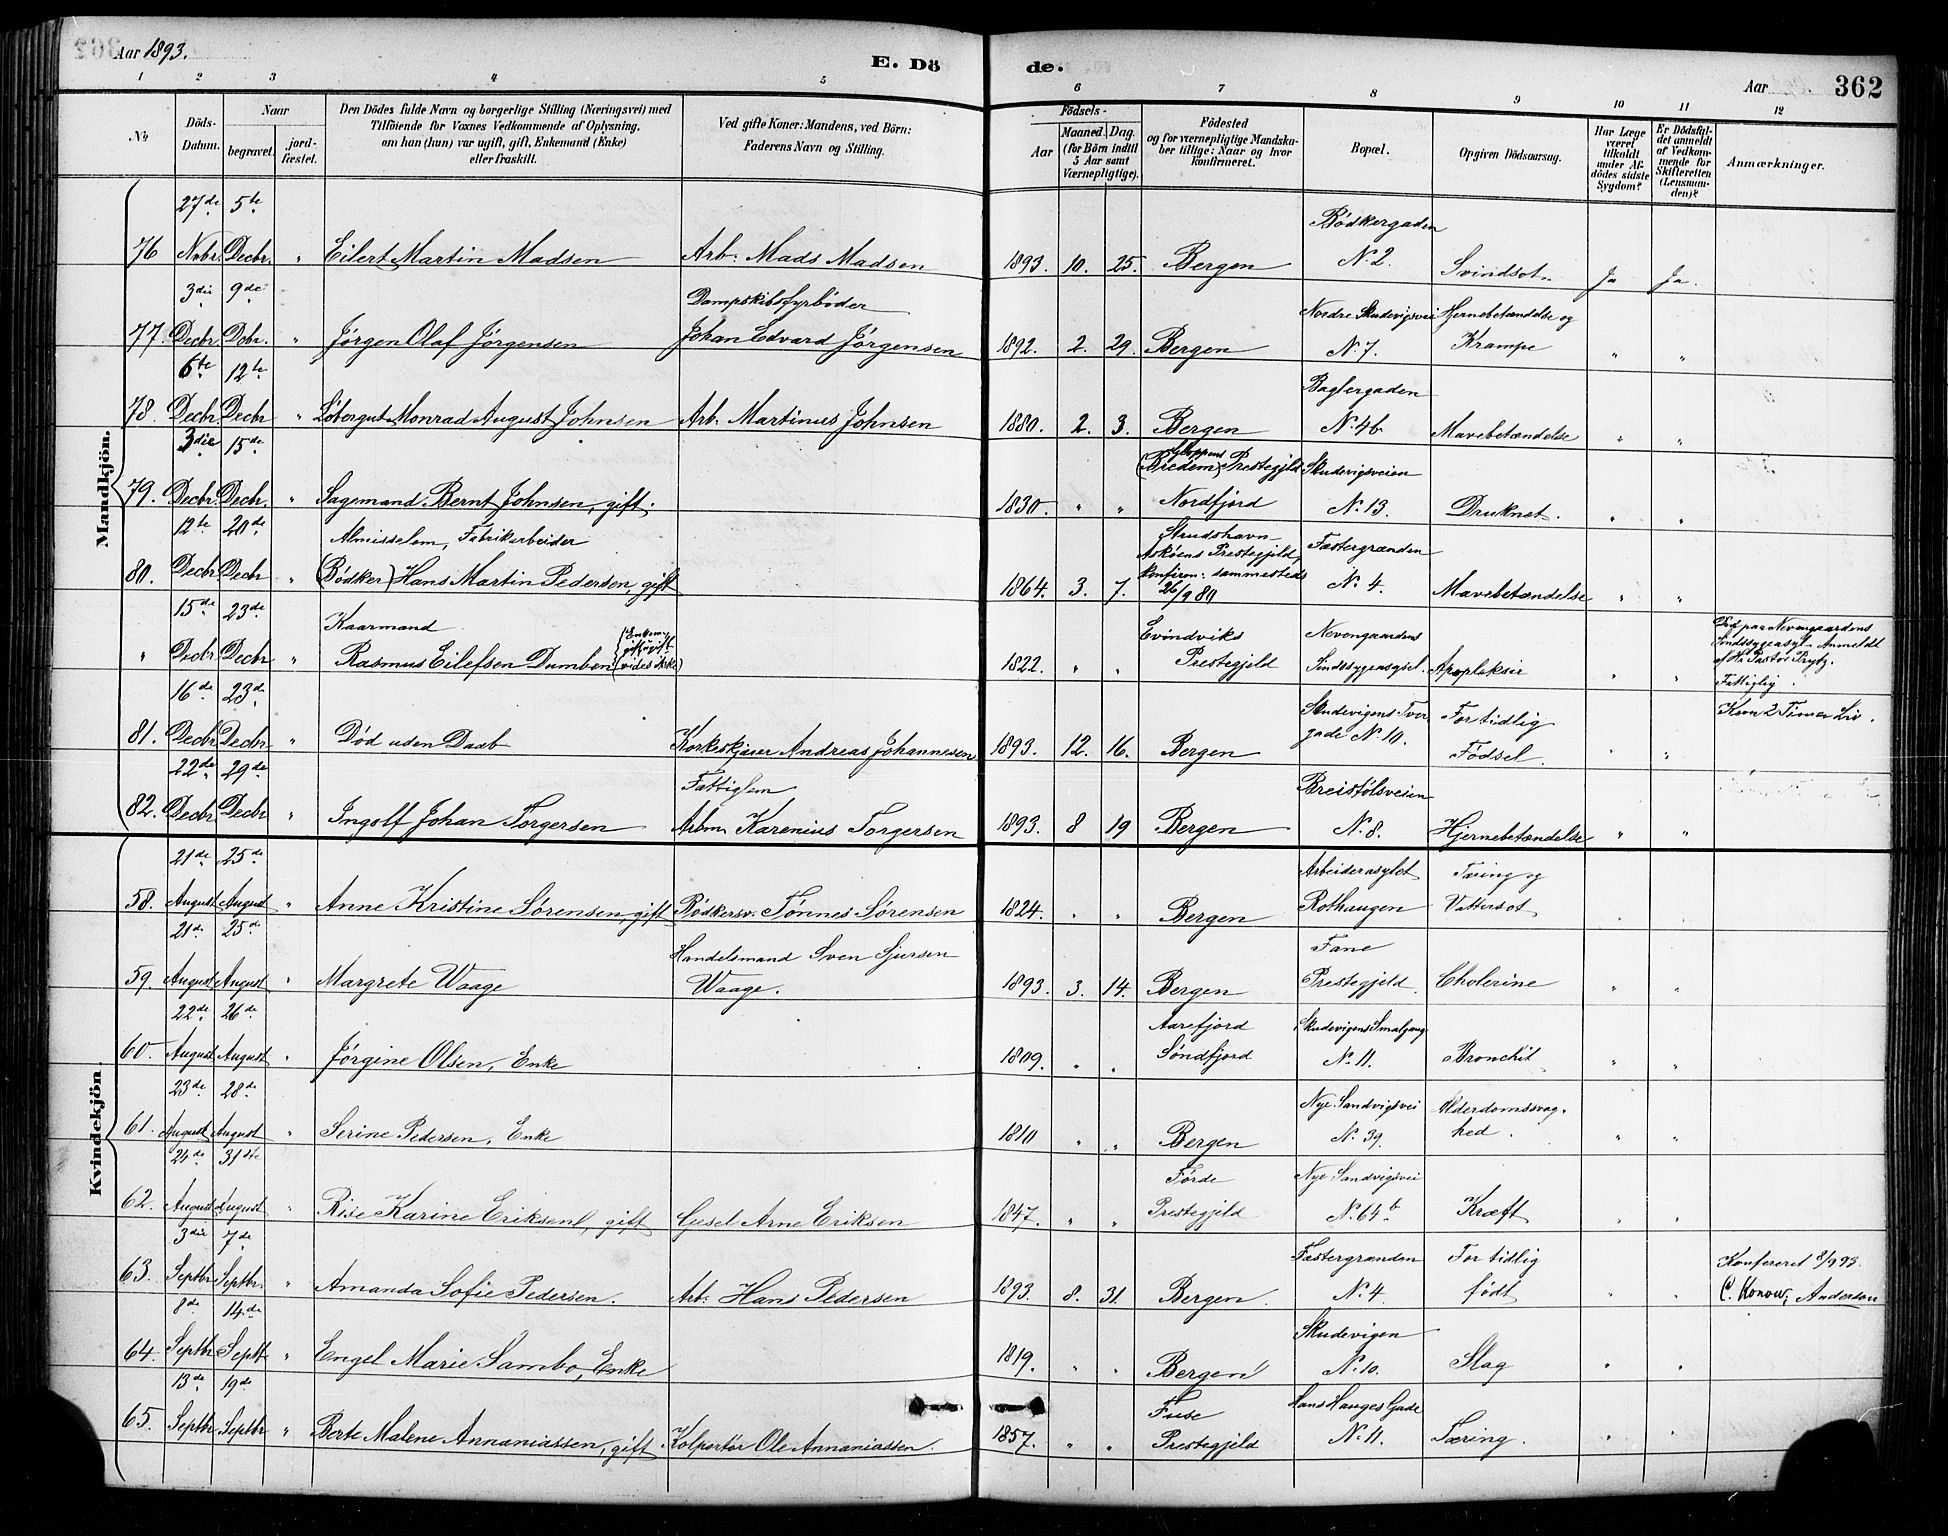 Aar 1893.
E. Döde.
Aar
362
1 2 3 4 5 6 7 8 9 10 11 12
No
Döds-Datum.
Naar
begravet.
jord-fæstet.
Den Dödes fulde Navn og borgerlige Stilling (Næringsvei) med
Tilföiende for Voxnes Vedkommende af Oplysning,
om han (hun) var ugift, gift, Enkemand (Enke)
eller fraskilt.
Ved gifte Koner: Mandens, ved Börn:
Faderens Navn og Stilling.
Födsels-
Aar
Maaned. Dag.
(for Börn indtil
5 Aar samt
Værnepligtige).
Födested
og for værnepligtige Mandska-
ber tillige: Naar og hvor
konfirmeret.
Bopæl.
Opgiven Dödsaarsag.
Har Læge
været
tilkaldt
under Af-
dödes sidste
Sygdom?
Er Dödsfal-
det anmeldt
af Vedkom-
mende for
Skifteretten
(Lensman-
den)?
Anmærkninger.
Mandkjön.
27de 5te Bødkergaden
76 Nvbr. Decbr. " Eilert Martin Madsen Arb. Mads Madsen 1893. 10. 25. Bergen No 2. Svindsot Ja Ja.
3die 9de Dampskibsfyrbøder Nordre Skudevigsvei Hjernebetændelse og
77. Decbr. Dcbr. " Jørgen Olaf Jørgensen Johan Edvard Jørgensen 1892. 2. 29. Bergen No 7. Krampe " "
6te 12te Baglergaden
78. Decbr. Decbr " Løbergut Monrad August Johnsen Arb. Martinus Johnsen 1880. 2. 3. Bergen No 4b. Mavebetændelse " "
3die 15de Gloppens (Bredem) Prestegjeld Skudevigsveien
79. Decbr. Decbr. " Sagemand Bernt Johnsen, gift. 1830. " " Nordfjord No 13. Druknet. " "
12te 20de Almisselem, Fabrikarbeider Strudshavn Askøens Prestegjeld, Fæstergrænden
80. Decbr Decbr " (Bødker) Hans Martin Pedersen, gift 1864. 3. 7. konfirm: sammesteds 26/9 80 No 4. Mavebetændelse " "
15de 23de Kaarmand (Enkem. gift ugift vides ikke) Evindviks Nevengaardens Død paa Nevengaardens
Sindssygeasyl. Anmeldt
" Decbr Decbr " Rasmus Eilefsen Dumben 1822. " " Prestegjeld Sindssygeasyl. Apoplexi " " af Hr. Pastor Prytz.
Fattiglig.
16de 23de Skudevigens Tver For tidlig Kun 2 Timer Liv.
81. Decbr. Decbr. " Død uden Daab Korkeskjærer Andreas Johannesen 1893. 12. 16. Bergen gade No 10. Fødsel. "
22de 29de Fattiglem Breistølsveien
82. Decbr Decbr " Ingolf Johan Torgersen Arbm. Karenius Torgersen 1893. 8 19 Bergen No 8. Hjernebetændelse " "
Kvindekjön.
21de 25de Arbeiderasylet Tæring og
58. August August " Anne Kristine Sørensen gift Bødkersv. Tønnes Sørensen 1824. " " Bergen Rothaugen Vattersot
21de 25de Handelsmand Sven Sjursen Fane
59. August August " Margrete Waage Waage. 1893. 3. 14. Bergen Prestegjeld. Cholerine " "
22de 26de Aarefjord Skudevigens Smalgang
60. August August " Jørgine Olsen, Enke 1809. " " Søndfjord No 11. Bronchit " "
23de 28de Nye Sandvigsvei Alderdomssvag-
61. August August " Serine Pedersen, Enke 1810 " " Bergen No 39. hed. " "
24de 31te Førde Nye Sandvigsvei
62. August August " Rise Karine Eriksen, gift Gjesel Arne Eriksen 1847. " " Prestegjeld No 64b Kræft " "
3die 7de Fæstergrænden For tidlig Konfereret 8/9 93.
63. Septbr Septbr. " Amanda Sofie Pedersen. Arb. Hans Pedersen 1893. 8. 31. Bergen. No 4. født " " C. Konow, Anderson
8de 14de Skudevigen
64. Septbr Septbr " Engel Marie Sambo, Enke 1819. " " Bergen No 10. Slag " "
13de 19de Fuse Hans Hauges Gade
65. Septbr Septbr " Berte Malene Annaniassen, gift Kolportør Ole Annaniassen. 1857. " " Prestegjeld No 11. Tæring. " "